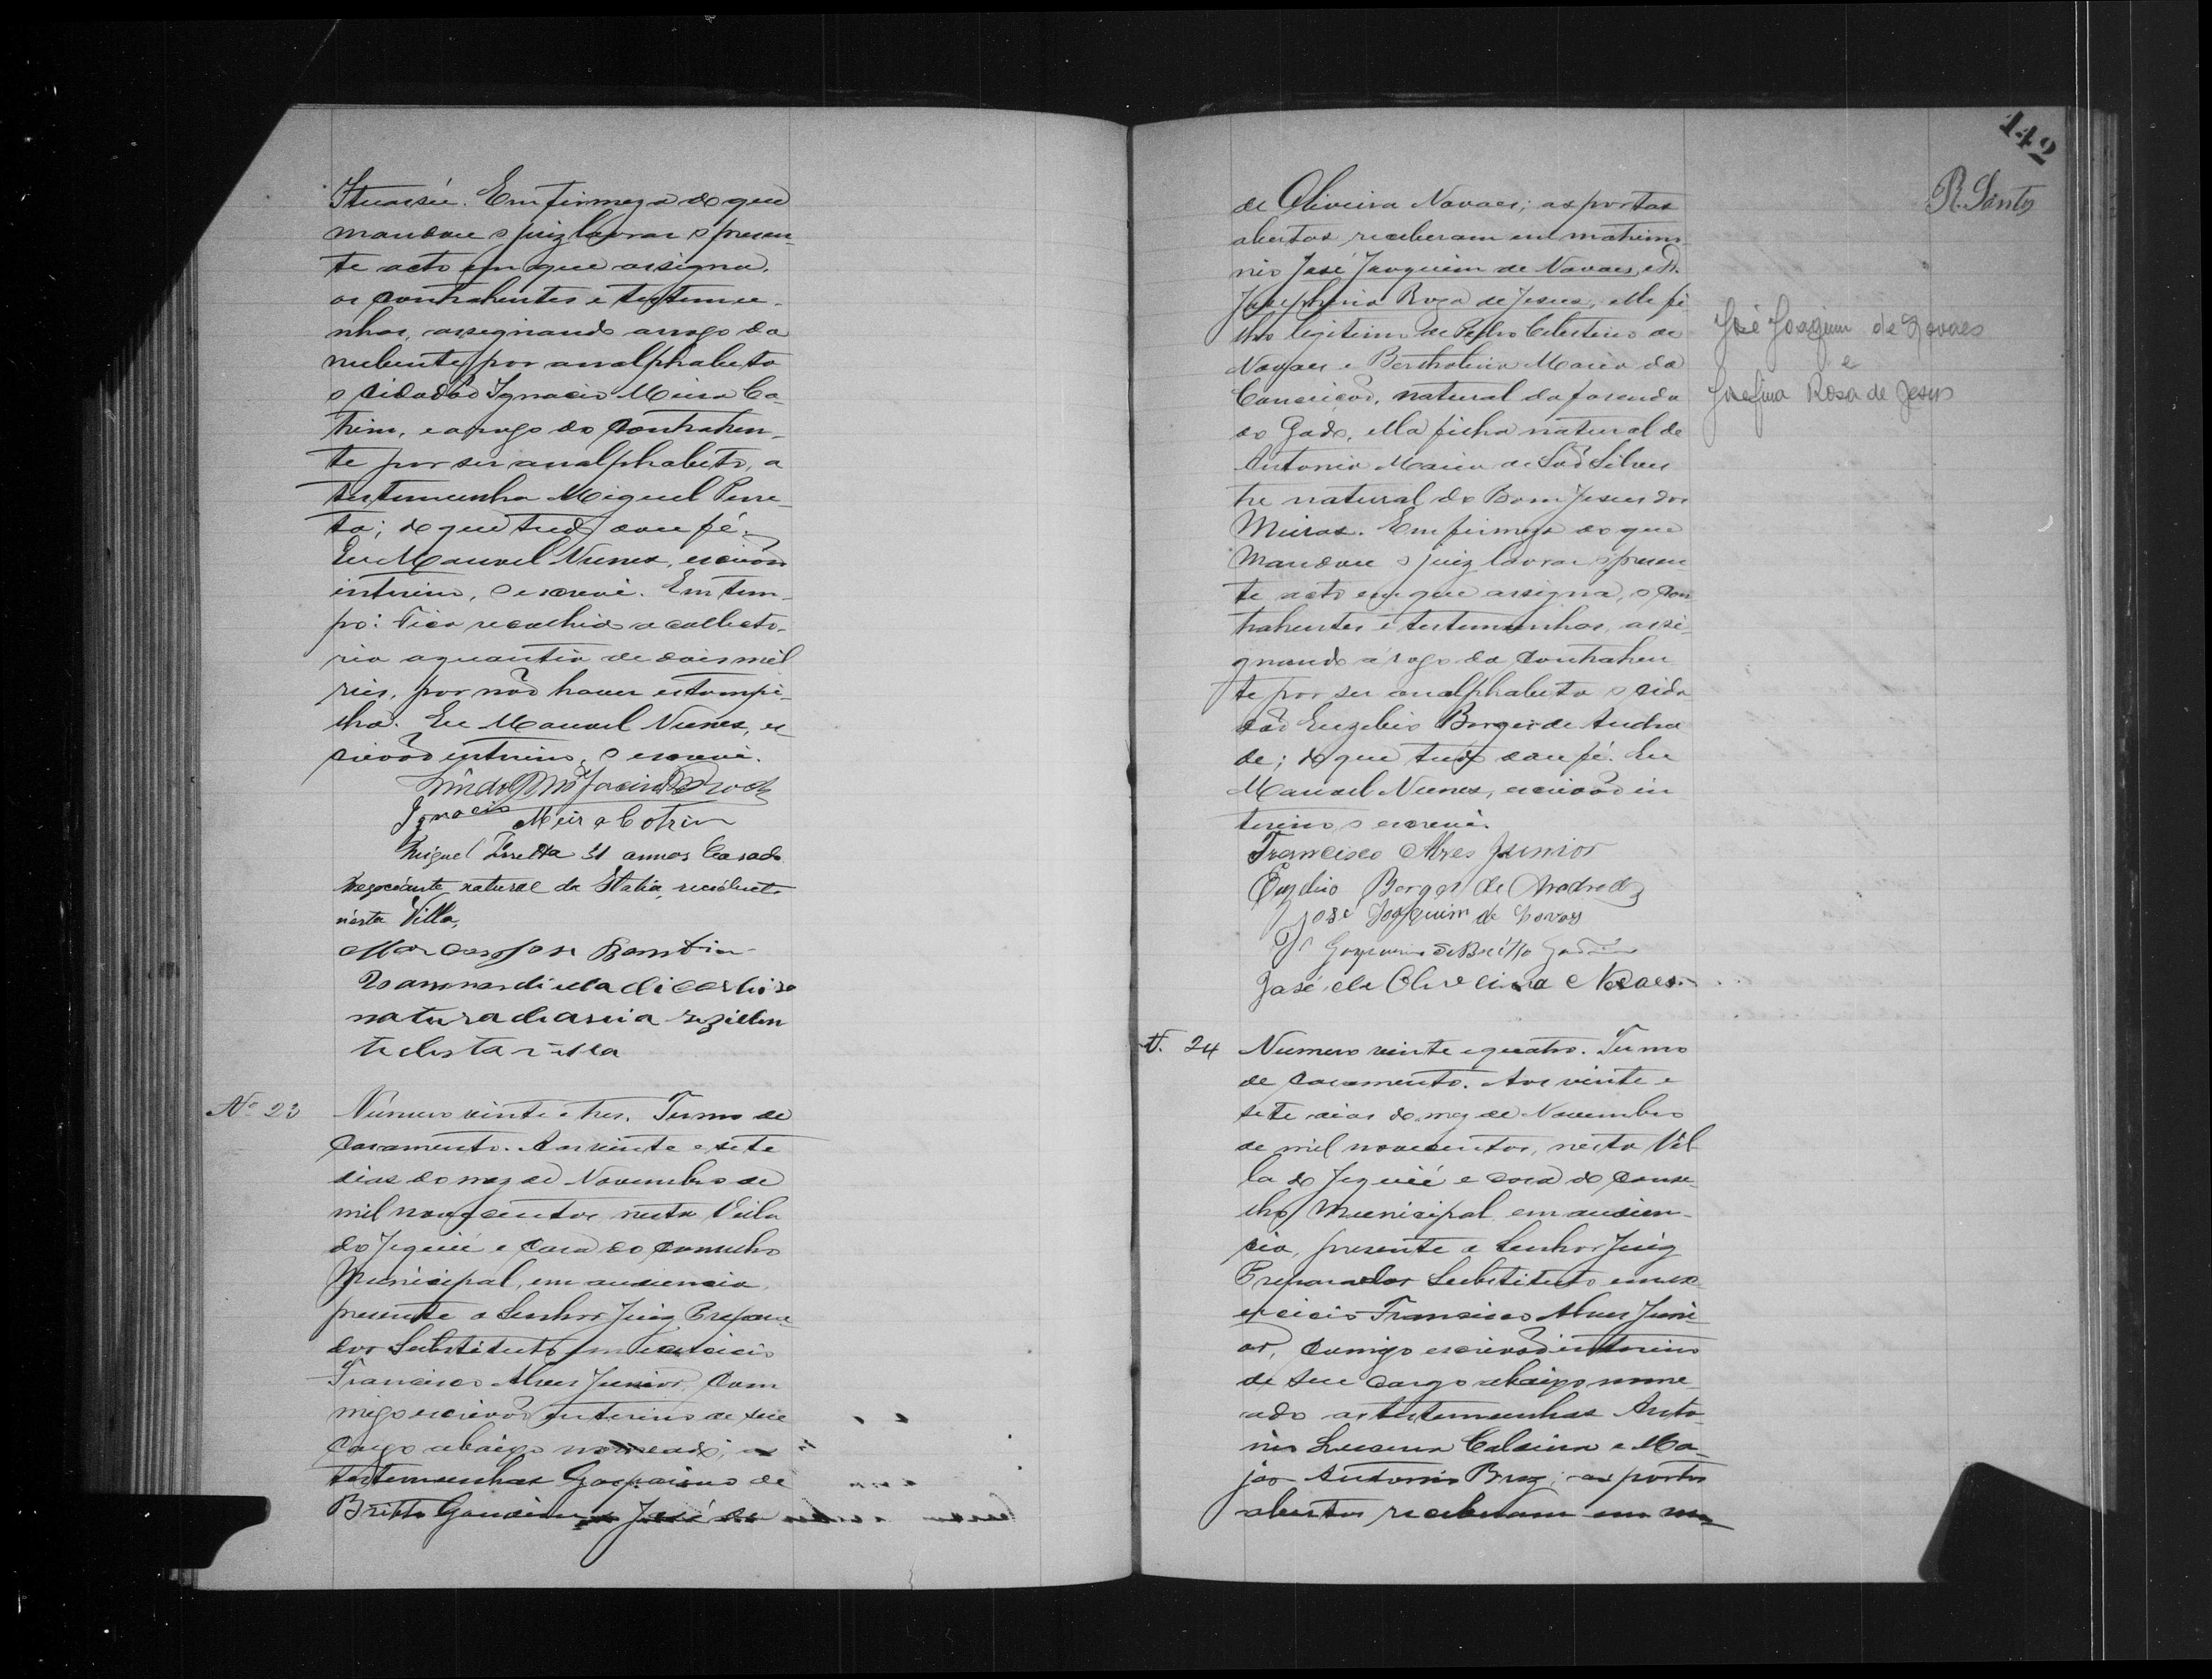 Ituassú. Em firmeza do que
mandou o juiz lavrar o presen-
te acto em que assigna,
os contrahentes e testemu-
nhas, assignando a rogo da
nubente por analphabeta
o cidadão Ignacio Meira Co-
trim, e a rogo do contrahen-
te por ser analphabeto, a
testemunha Miguel Perre-
ta; do que tudo dou fé.
Eu Manoel Nunes, escrivão
interino, o escrevi. Em tem-
po: Fica recolhido a collecto-
ria a quantia de dois mil
reis, por não haver estampi-
lha. Eu Manoel Nunes, es-
crivão interino, o escrevi.
Ignacio Meira Cotrim
Miguel 31 annos Casado
Negociante natural da Italia, residente
nésta Villa,
natura reziden
te desta villa
Nº 23 Numero vinte e tres. Termo de
Casamento. Aos vinte e sete
dias do mez de Novembro de
mil novecentos, nesta Villa
do Jequié e Casa do Conselho
Municipal, em audiencia,
presente o Senhor Juiz Prepara-
dor Substituto em exercicio
Francisco Alves Junior, Com
migo escrivão interino de seu
Cargo abaixo nomeado; as
testemunhas Gasparino de
Britto Gondim e José de
142
R. Santos
de Oliveira Novaes; as portas
abertas receberam em matrimo-
nio José Joaquim de Novaes, e D.
Josephina Roza de Jesus, elle fi-
lho legitimo de Pedro Celestino de
Novaes e Bertholina Maria da
Conceição, natural da fazenda
do Gado, ella filha natural de
Antonia Maria de São Silves
tre natural do Bom Jesus dos
Meiras. Em firmeza do que
mandou o juiz lavrar o presen-
te acto em que assigna, o Con
trahentes e testemunhas, assi-
gnando á rogo da Contrahen
te por ser analphabeta o cida
dão Euzebio Borges de Andra
de; do que tudo dou fé. Eu
Manoel Nunes, escrivão in
terino, o escrevi.
Francisco Alves Junior
Euzebio Borges de Andrade
José Joaquim de Novaes
Gasparino de Britto Gondim
José de Oliveira Novaes
José Joaquim de Novaes
e
Josefina Rosa de Jesus
N. 24 Numero vinte e quatro. Termo
de Casamento. Aos vinte e
sete dias do mez de Novembro
de mil novecentos, nesta Vil
la do Jequié e Casa do Conse-
lho Municipal em audien-
cia, presente o Senhor Juiz
Preparador Substituto em ex
ercicio Francisco Alves Juni
or, Comigo escrivão interino
de seu Cargo abaixo nome-
ado as testemunhas Anto-
nio Lucena Caldeira e Ma-
jor Antonio Braz; as portas
abertas receberam em ma-